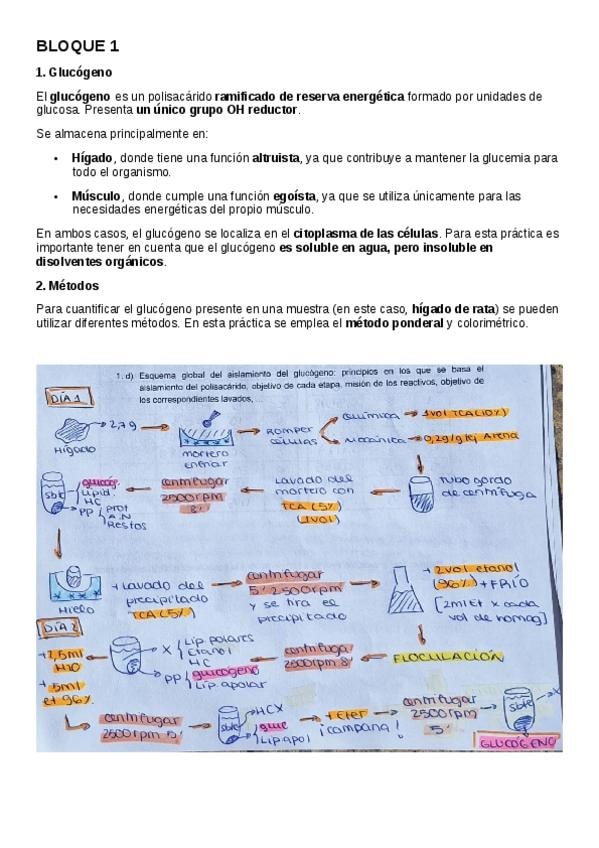 BLOQUE 1
1. Glucógeno
El glucógeno es un polisacárido ramificado de reserva energética formado por unidades de
glucosa. Presenta un único grupo OH reductor.
Se almacena principalmente en:
• Hígado, donde tiene una función altruista, ya que contribuye a mantener la glucemia para
todo el organismo.
• Músculo, donde cumple una función egoísta, ya que se utiliza únicamente para las
necesidades energéticas del propio músculo.
En ambos casos, el glucógeno se localiza en el citoplasma de las células. Para esta práctica es
importante tener en cuenta que el glucógeno es soluble en agua, pero insoluble en
disolventes orgánicos.
2. Métodos
Para cuantificar el glucógeno presente en una muestra (en este caso, hígado de rata) se pueden
utilizar diferentes métodos. En esta práctica se emplea el método ponderal y colorimétrico.
1. d) Esquema global del aislamiento del glucógeno: principios en los que se basa el
aislamiento del polisacárido, objetivo de cada etapa, misión de los reactivos, objetivo de
los correspondientes lavados, ...
DÍA 1
Hígado
2,7g
mortero
enfriar
ROMPER
CÉLULAS
Química → 1vol TCA(10%)
Mecánica → 0,2g/g Arena
tubo gordo
de centrífuga
Lavado del
mortero con
TCA (5%)
(1vol)
centrifugar
2500rpm
8'
sbte
glucóg.
Lipid.
HC
PP
Prot
A.N
Restos
Hielo
+ Lavado del
precipitado
TCA(5%)
centrifugar
5' 2500rpm
y se tira el
precipitado
+ 2vol etanol
(96%) + FRÍO
[2ml Et x cada
vol de homog]
FLOCULACIÓN
centrifuga
2500 rpm 8'
X
Lip. polares
Etanol
HC
PP
glucógeno
Lip. apolar
DÍA 2
+2,5ml
H2O
+5ml
et 96%
centrifugar
2500 rpm 5'
sbte
HCX
glue
Lip.apol
+ Eter
¡campana!
centrifugar
2500rpm
5'
sbte
X
GLUCÓGENO